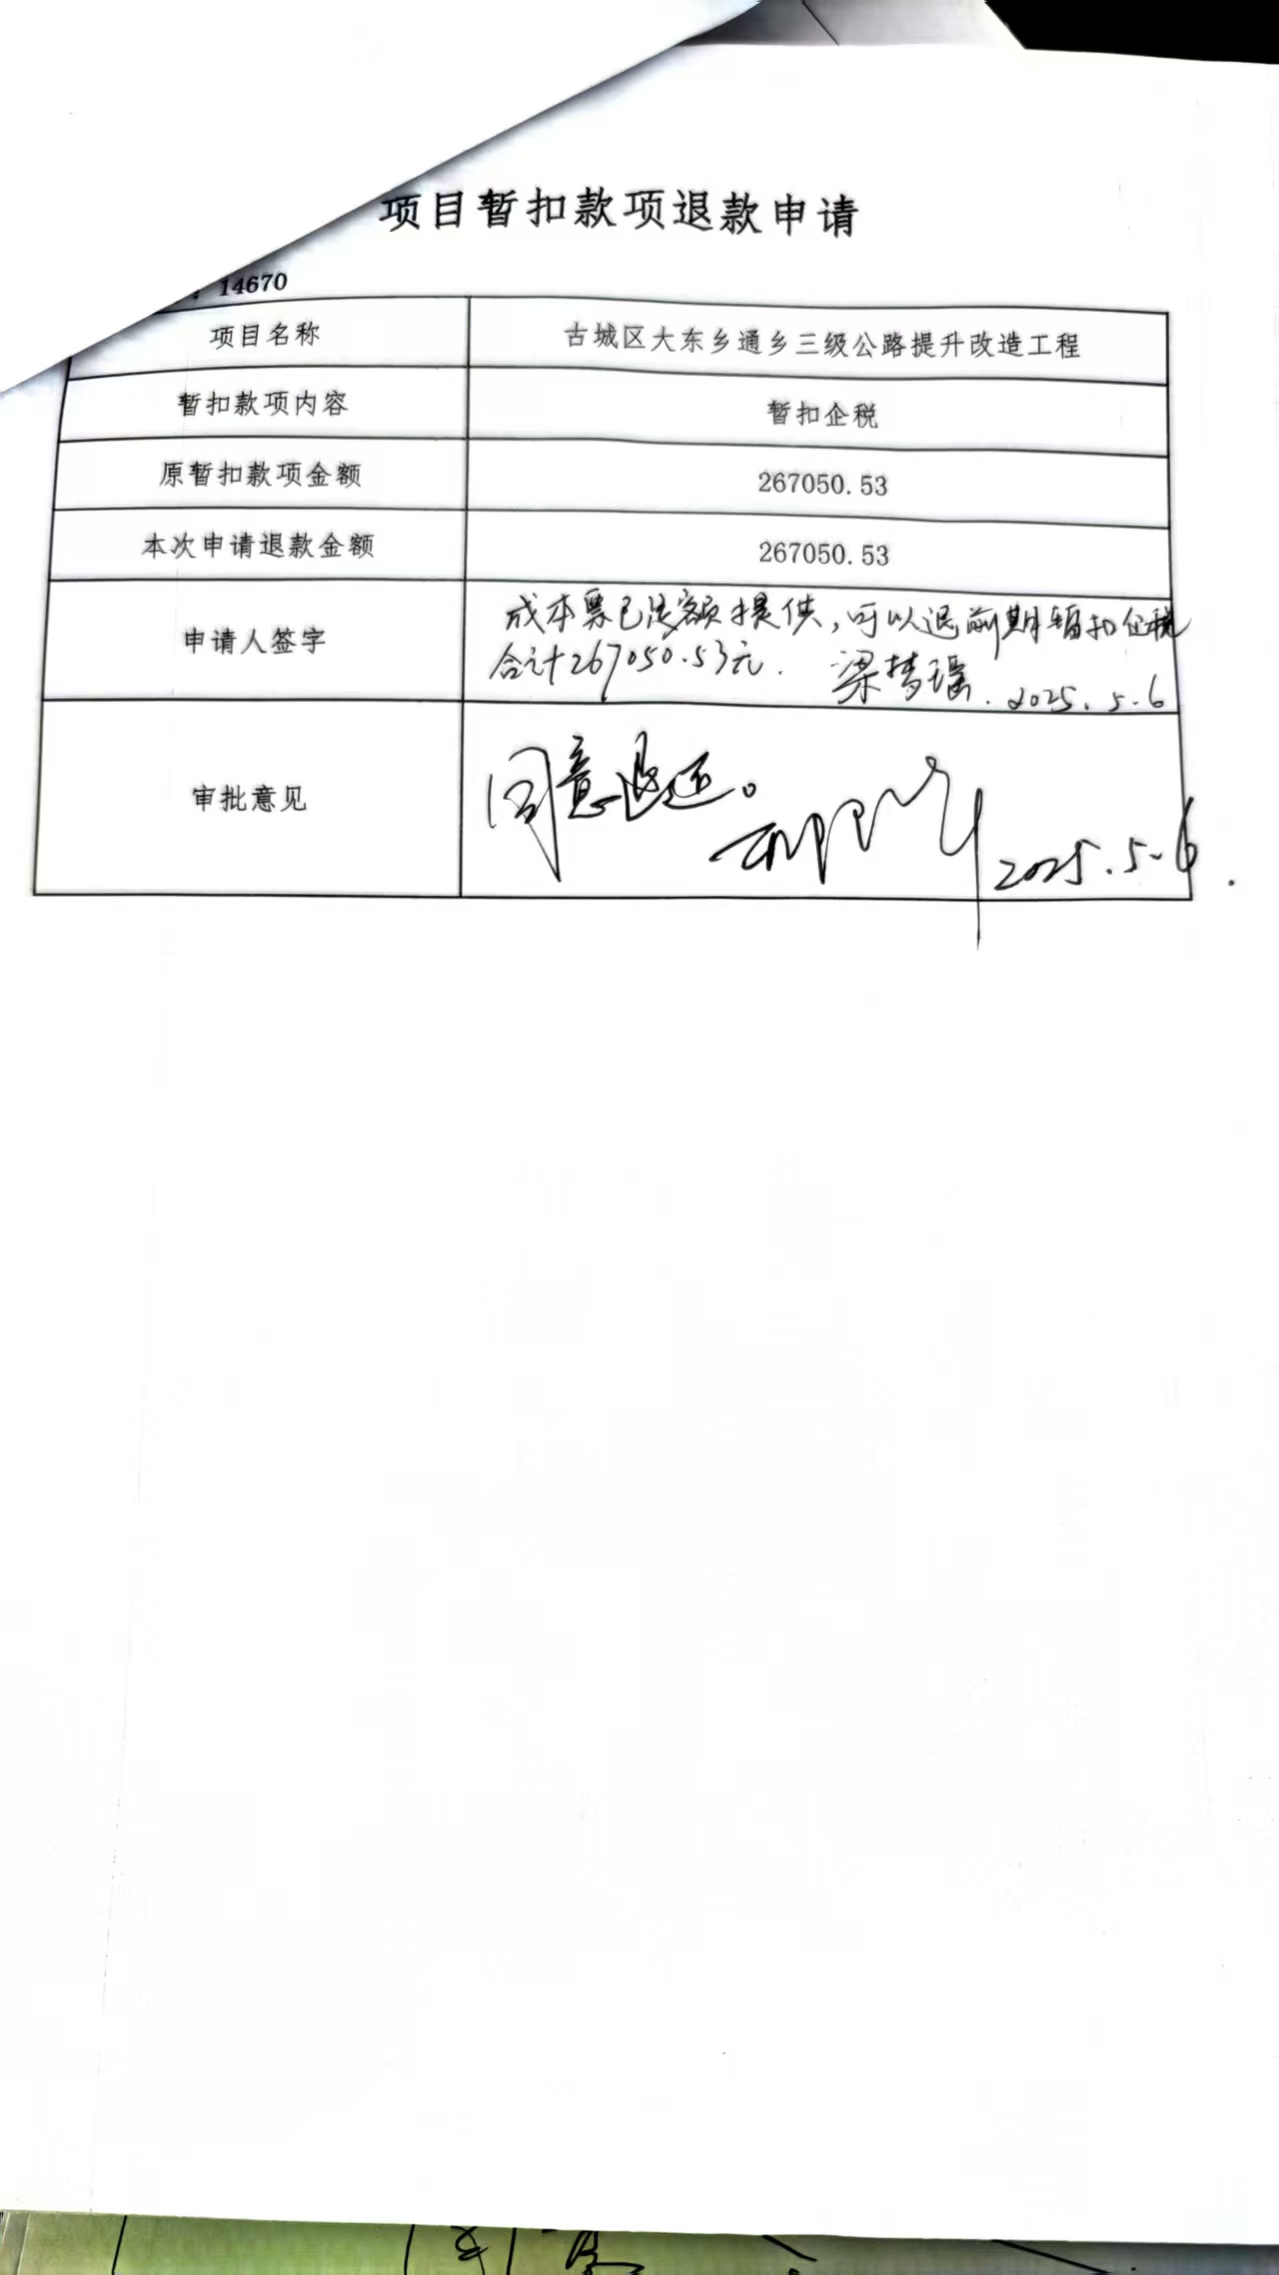 项目暂扣款项退款申请
：14670
项目名称 古城区大东乡通乡三级公路提升改造工程
暂扣款项内容 暂扣企税
原暂扣款项金额 267050.53
本次申请退款金额 267050.53
申请人签字 成本票已足额提供，可以退前期暂扣企税
合计267050.53元. 梁梦瑶. 2025.5.6
审批意见 同意退还。
2025.5.6.